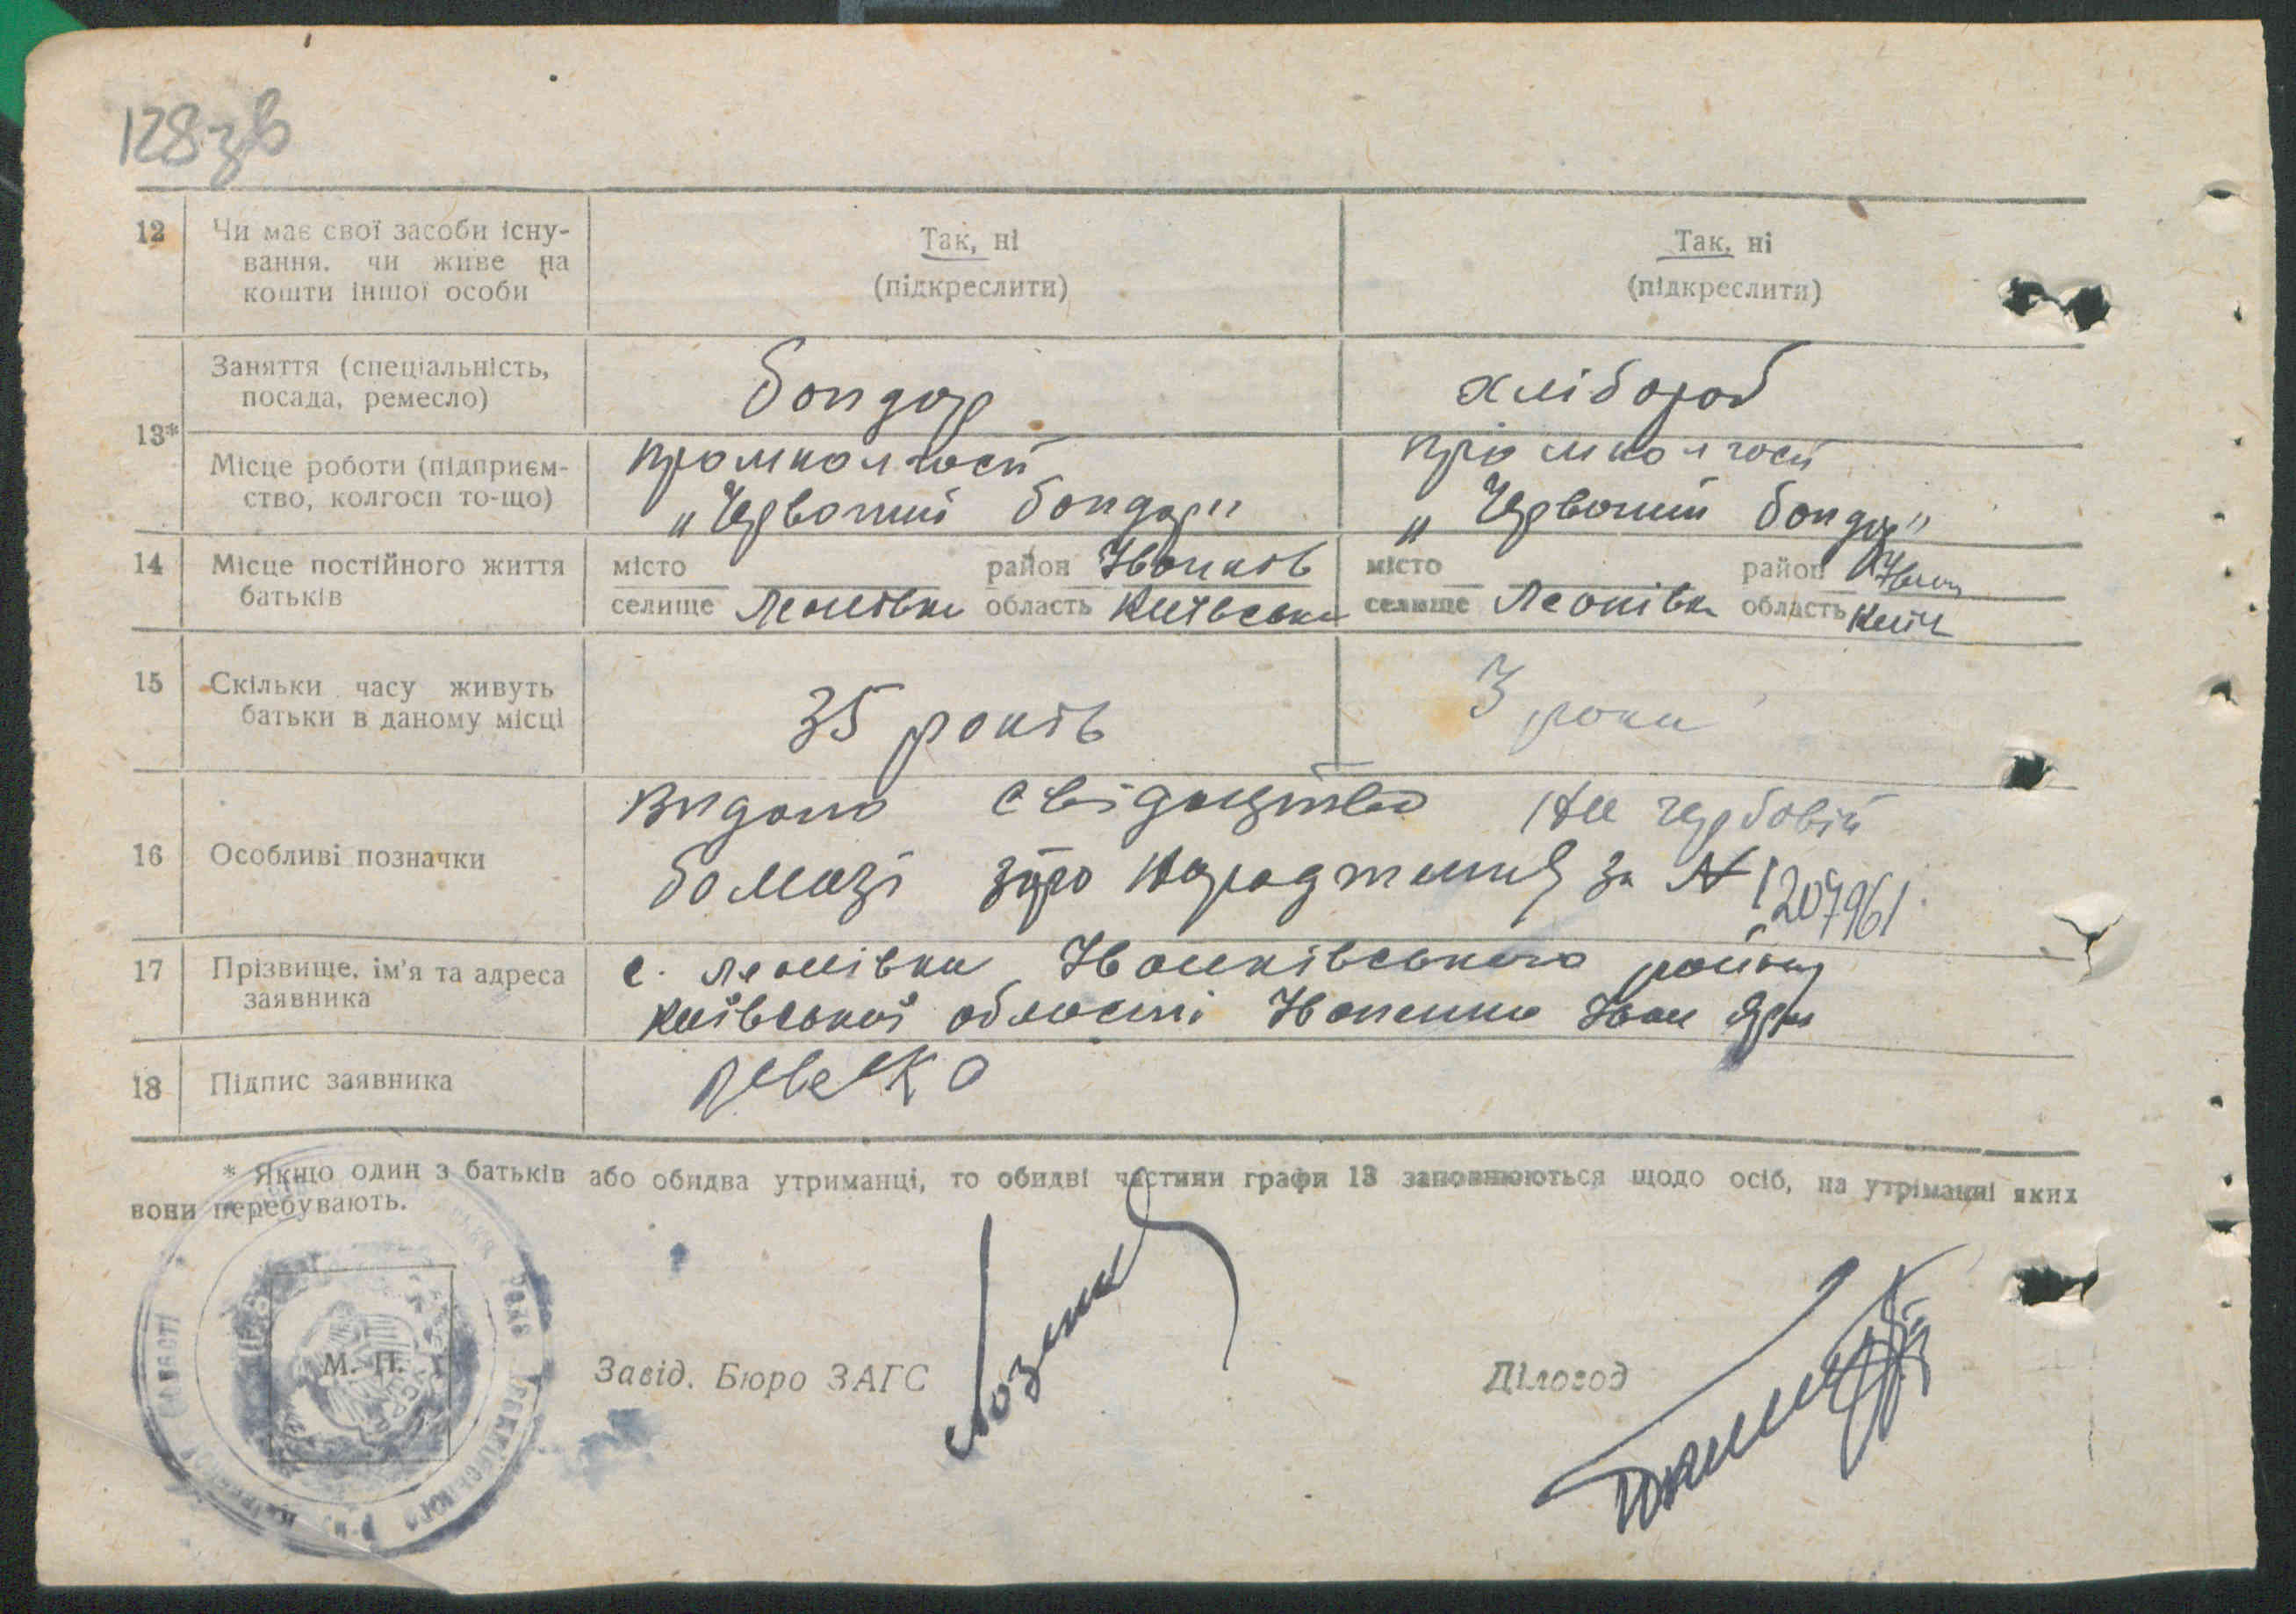 128зв
12 Чи має свої засоби існу- Так, ні Так, ні
вання, чи живе на (підкреслити) (підкреслити)
кошти іншої особи
13* Заняття (спеціальність, бондар хлібороб
посада, ремесло)
Місце роботи (підприєм- промколгосп промколгосп
ство, колгосп то-що) „Червоний бондар" „Червоний бондар"
14 Місце постійного життя місто район Іванків місто район Іван
батьків селище Леонівка область Київська селище Леонівка область Київ
15 Скільки часу живуть 35 років 3 роки
батьки в даному місці
16 Особливі позначки Видано свідоцтво на гербовій
бомазі про народження за №
17 Прізвище, ім'я та адреса с. Леонівка Іванківського району
заявника Київської області Іваненко Іван
18 Підпис заявника
* Якщо один з батьків або обидва утриманці, то обидві частини графи 13 заповнюються щодо осіб, на утріманні яких
вони перебувають.
М. П. Завід. Бюро ЗАГС Діловод